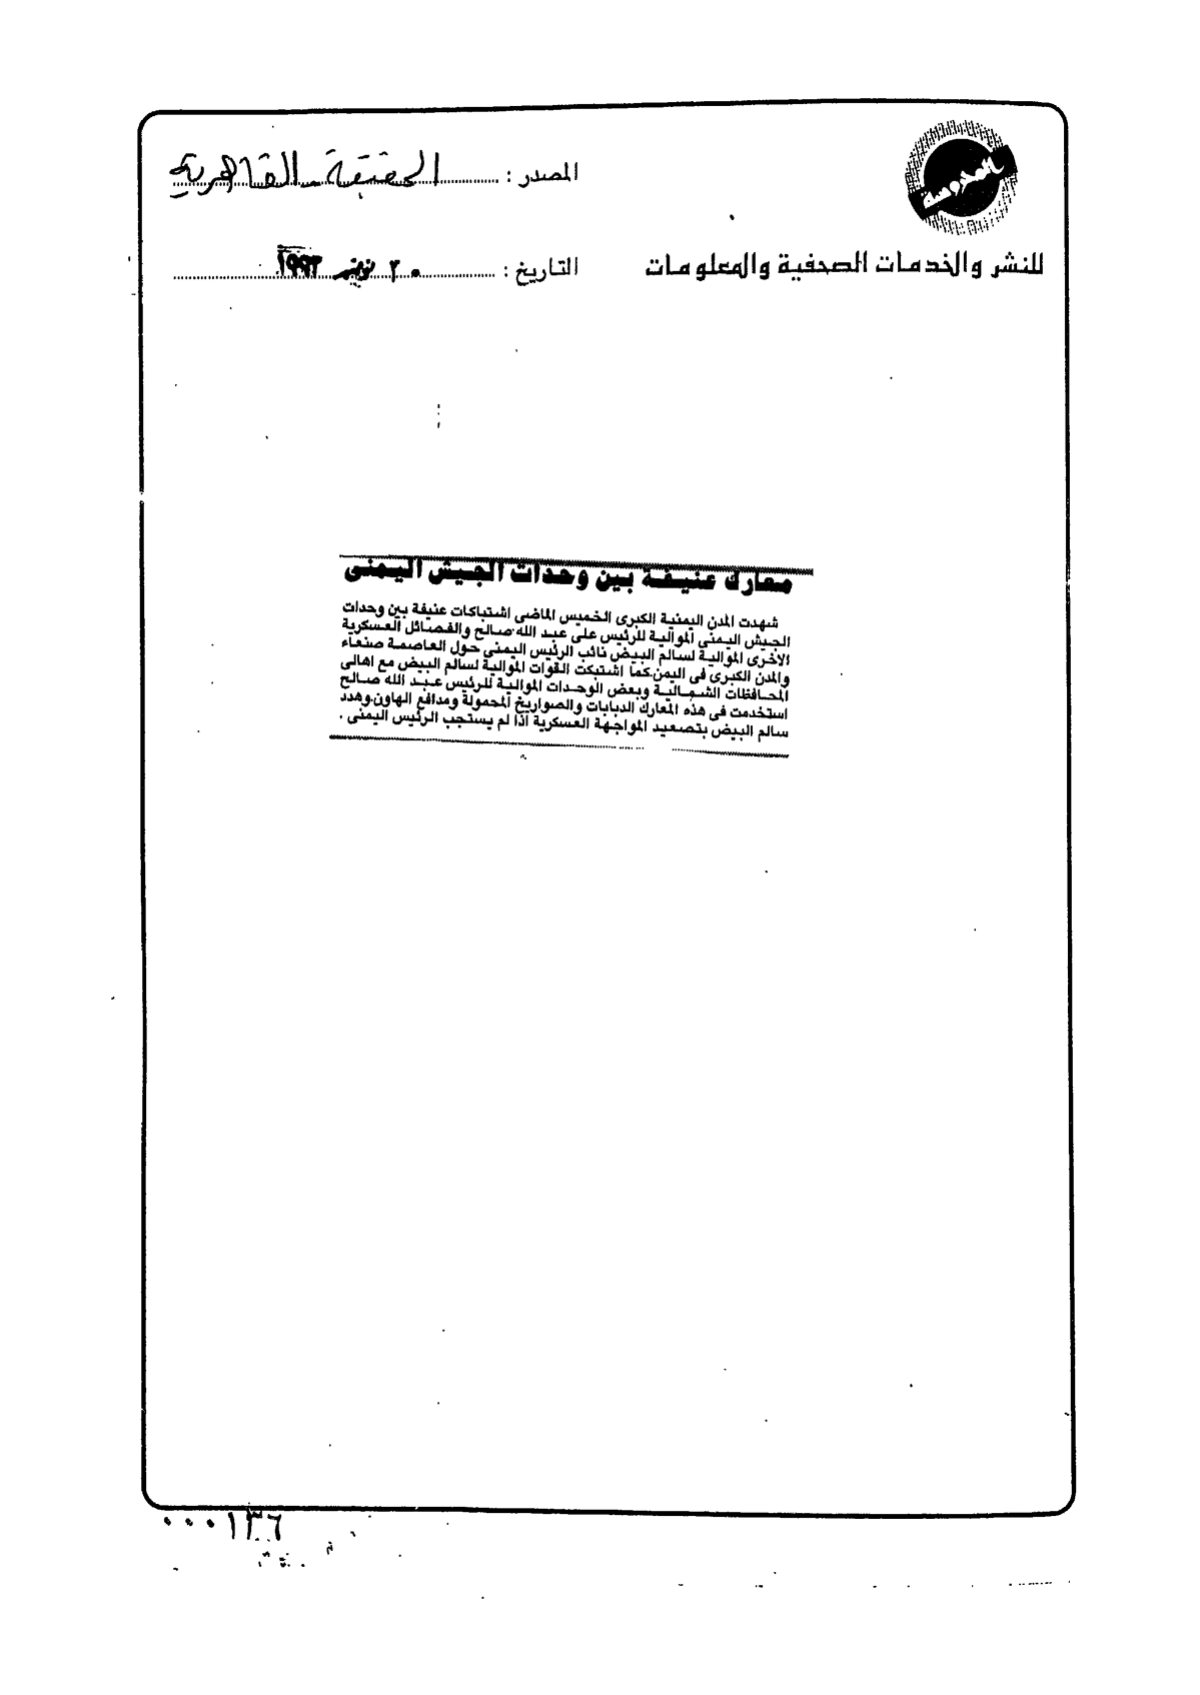 المحروسة
المصدر : الحقيقة القاهرية
للنشر والخدمات الصحفية والمعلومات
التاريخ : ٢٠ نوفمبر ١٩٩٣
معارك عنيفة بين وحدات الجيش اليمنى
شهدت المدن اليمنية الكبرى الخميس الماضى اشتباكات عنيفة بين وحدات
الجيش اليمنى الموالية للرئيس على عبد الله صالح والفصائل العسكرية
الاخرى الموالية لسالم البيض نائب الرئيس اليمنى حول العاصمة صنعاء
والمدن الكبرى فى اليمن.كما اشتبكت القوات الموالية لسالم البيض مع اهالى
المحافظات الشمالية وبعض الوحدات الموالية للرئيس عبد الله صالح
استخدمت فى هذه المعارك الدبابات والصواريخ المحمولة ومدافع الهاون.وهدد
سالم البيض بتصعيد المواجهة العسكرية اذا لم يستجب الرئيس اليمنى .
٠٠٠١٣٦